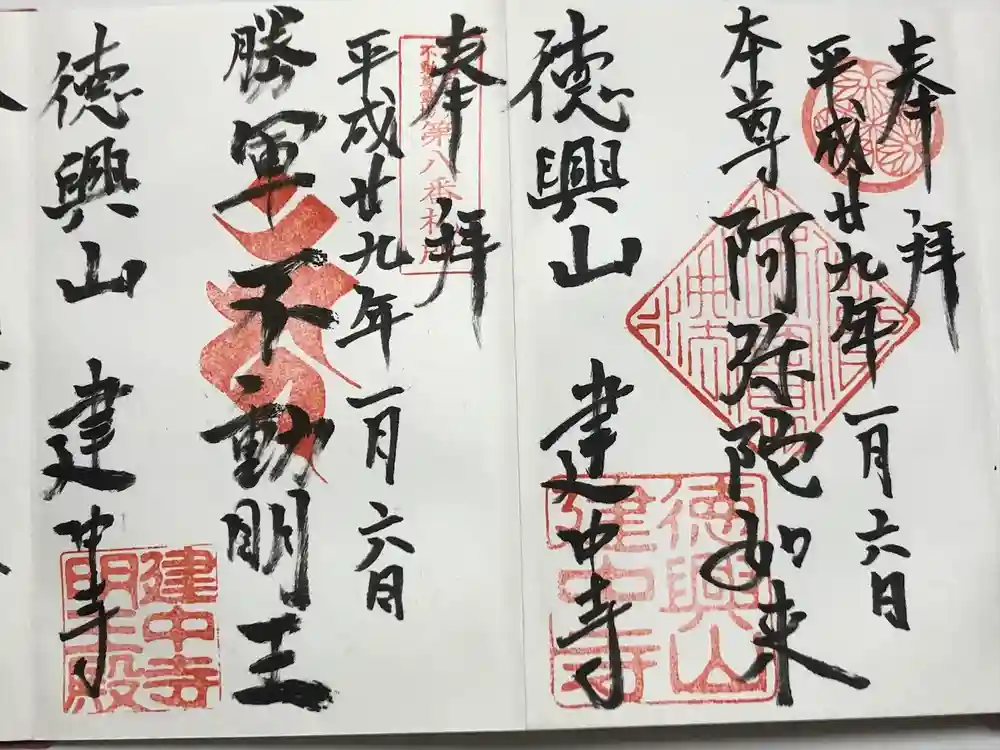 奉拝
平成廿九年一月六日
本尊阿弥陀如来
徳興山建中寺
徳興山
建中寺
奉拝
第八番札所
平成廿九年一月六日
勝軍不動明王
徳興山建中寺
建中寺
明王殿